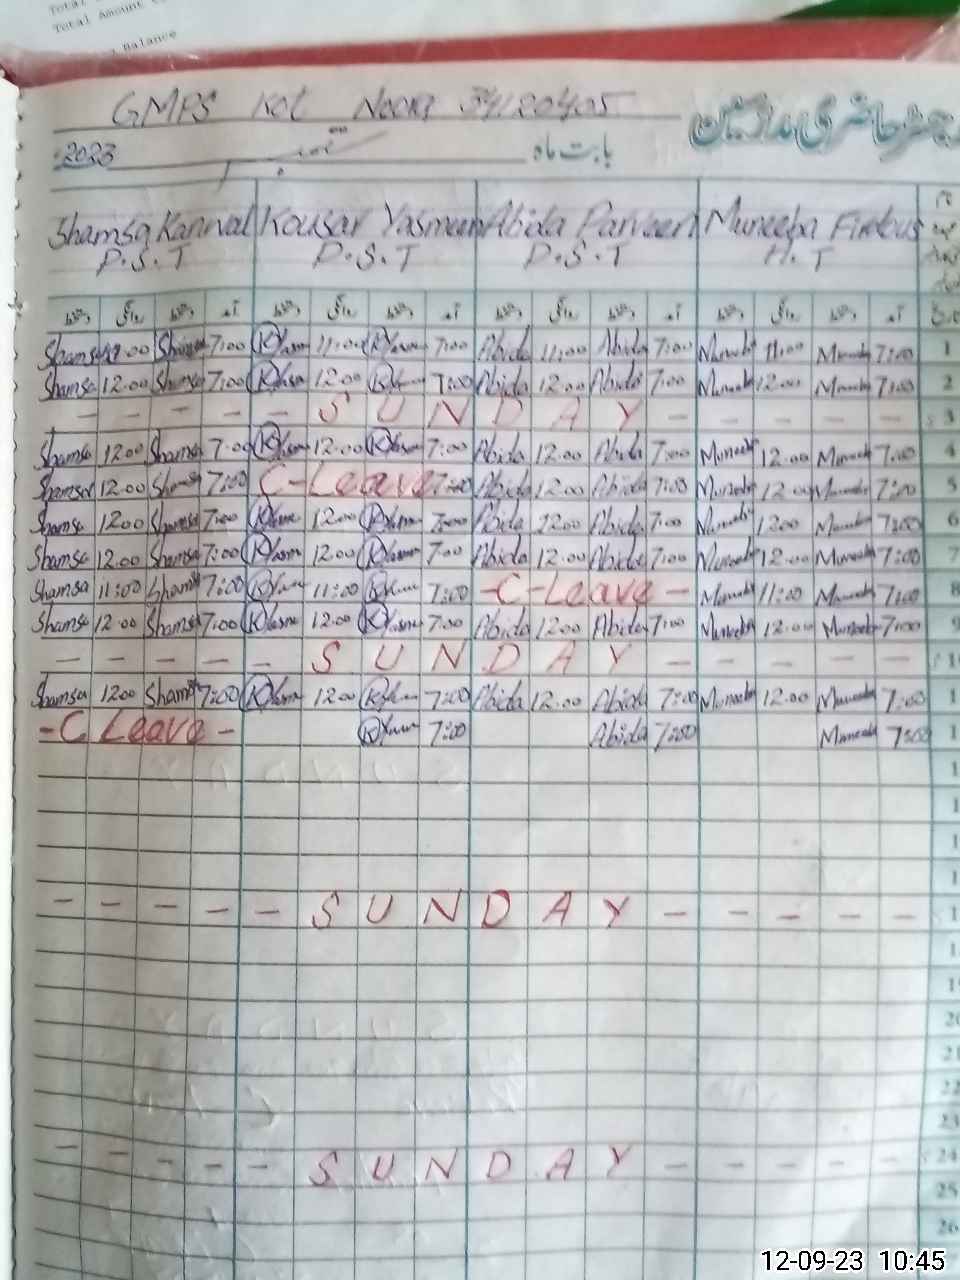 Total
Total Amount
Balance
GMPS Kot Noora 34120405
رجسٹر حاضری مدرسین
2023 بابت ماہ
Shamsa Kanwal Kousar Yasmeen Abida Parveen Muneeba Firdous
P.S.T P.S.T P.S.T H.T
دستخط روانگی دستخط آمد دستخط روانگی دستخط آمد دستخط روانگی دستخط آمد دستخط روانگی دستخط آمد
Shamsa 11:00 Shamsa 7:00 11:00 7:00 Abida 11:00 Abida 7:00 11:00 7:00 1
Shamsa 12:00 Shamsa 7:00 12:00 7:00 Abida 12:00 Abida 7:00 12:00 7:00 2
- - - - - S U N D A Y - - - - - 3
Shamsa 12:00 Shamsa 7:00 12:00 7:00 Abida 12:00 Abida 7:00 12:00 7:00 4
Shamsa 12:00 Shamsa 7:00 C-Leave 7:00 Abida 12:00 Abida 7:00 12:00 7:00 5
Shamsa 12:00 Shamsa 7:00 12:00 7:00 Abida 12:00 Abida 7:00 12:00 7:00 6
Shamsa 12:00 Shamsa 7:00 12:00 7:00 Abida 12:00 Abida 7:00 12:00 7:00 7
Shamsa 11:00 Shamsa 7:00 11:00 7:00 -C-Leave- 11:00 7:00 8
Shamsa 12:00 Shamsa 7:00 12:00 7:00 Abida 12:00 Abida 7:00 12:00 7:00 9
- - - - - S U N D A Y - - - - - 1
Shamsa 12:00 Shamsa 7:00 12:00 7:00 Abida 12:00 Abida 7:00 12:00 7:00 1
-C Leave- 7:00 Abida 7:00 7:00 1
1
1
1
1
- - - - - S U N D A Y - - - - - 1
1
19
20
21
22
23
- - - - - S U N D A Y - - - - - 24
25
26
12-09-23 10:45